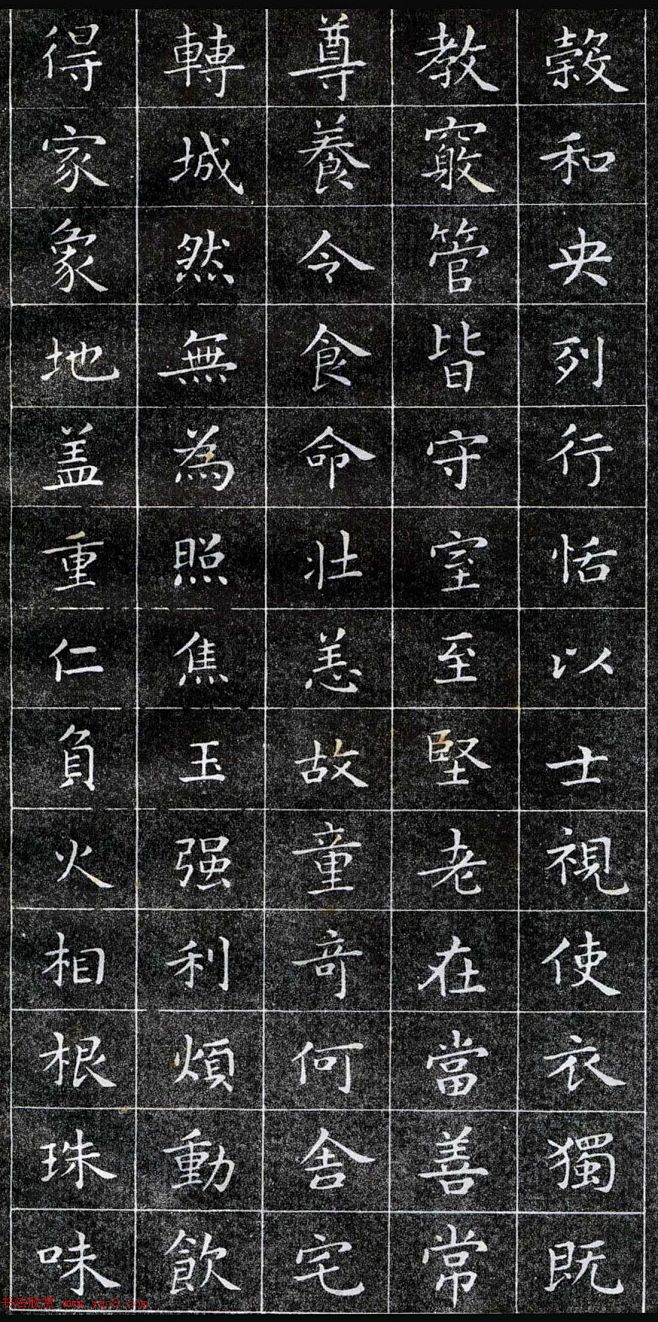 穀和央列行恬以士視使衣獨既
教窮管皆守室至堅老在當善常
尊養令食命壯恙故童奇何舍宅
轉城然無為照焦玉强利煩動飲
得家象地盖重仁負火相根珠味
书法欣赏 www.yac8.com